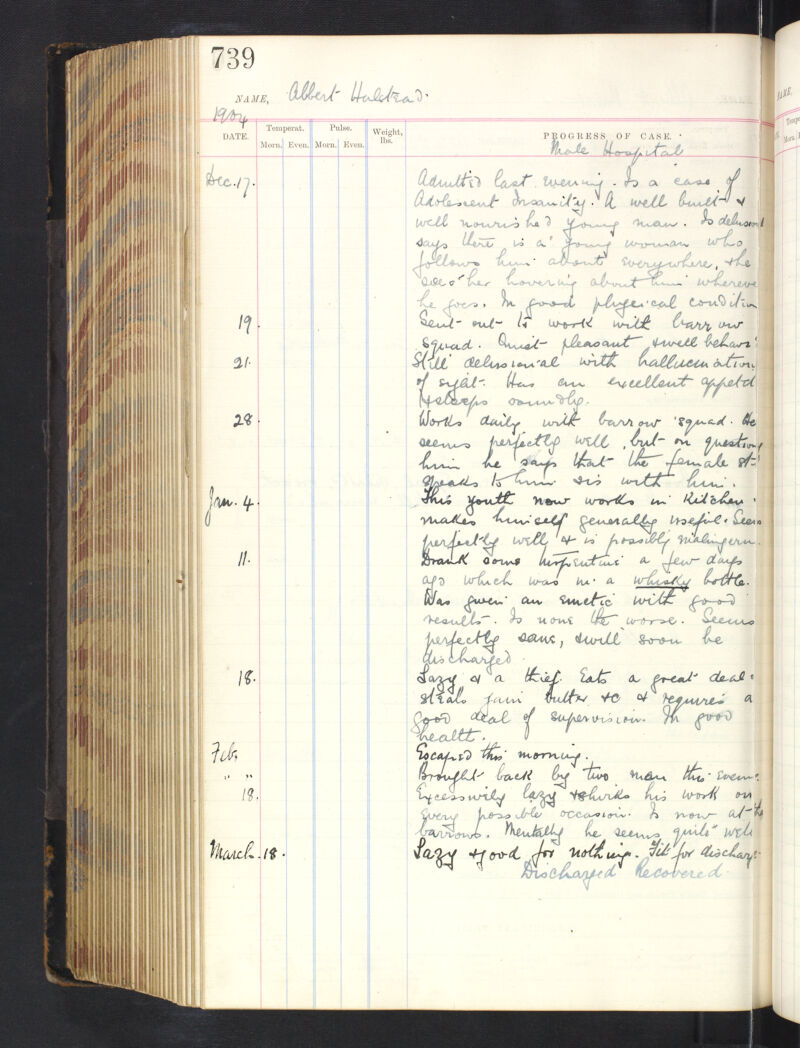 739
NAME, Albert Halstead.
1904
DATE. Temperat. Pulse. Weight, lbs. PROGRESS OF CASE.
Morn. Even. Morn. Even. Male Hospital
Dec. 17. Admitted last evening. Is a case of
Adolescent Insanity. A well built &
well nourished young man. Is delusional
says there is a young woman who
follows him about everywhere, & he
sees her hovering about him wherever
he goes. In good physical condition
19. Sent out to work with barrow
squad. Quiet pleasant & well behav
21. Still delusional with hallucination
of sight. Has an excellent appet
& sleeps soundly.
28. Works daily with barrow squad. He
seems perfectly well, but on question
him he says that the female st
speaks to him & is with him.
Jan. 4. This youth now works in Kitchen.
makes himself generally useful. Seems
perfectly well & is possibly malingerin
11. Drank some turpentine a few days
ago which was in a whisky bottle.
Was given an emetic with good
results. Is none the worse. Seems
perfectly sane, & will soon be
discharged.
18. Lazy & a thief. Eats a great deal.
Steals jam butter &c & requires a
good deal of supervision. In good
health.
Feb. Escaped this morning.
" " Brought back by two men this even
18. Excessively lazy & shirks his work on
every possible occasion. Is now at the
barrows. Mentally he seems quite well
March. 18. Lazy & good for nothing. Fit for discharge
Discharged Recovered.
NAME,
Tempe
Morn.